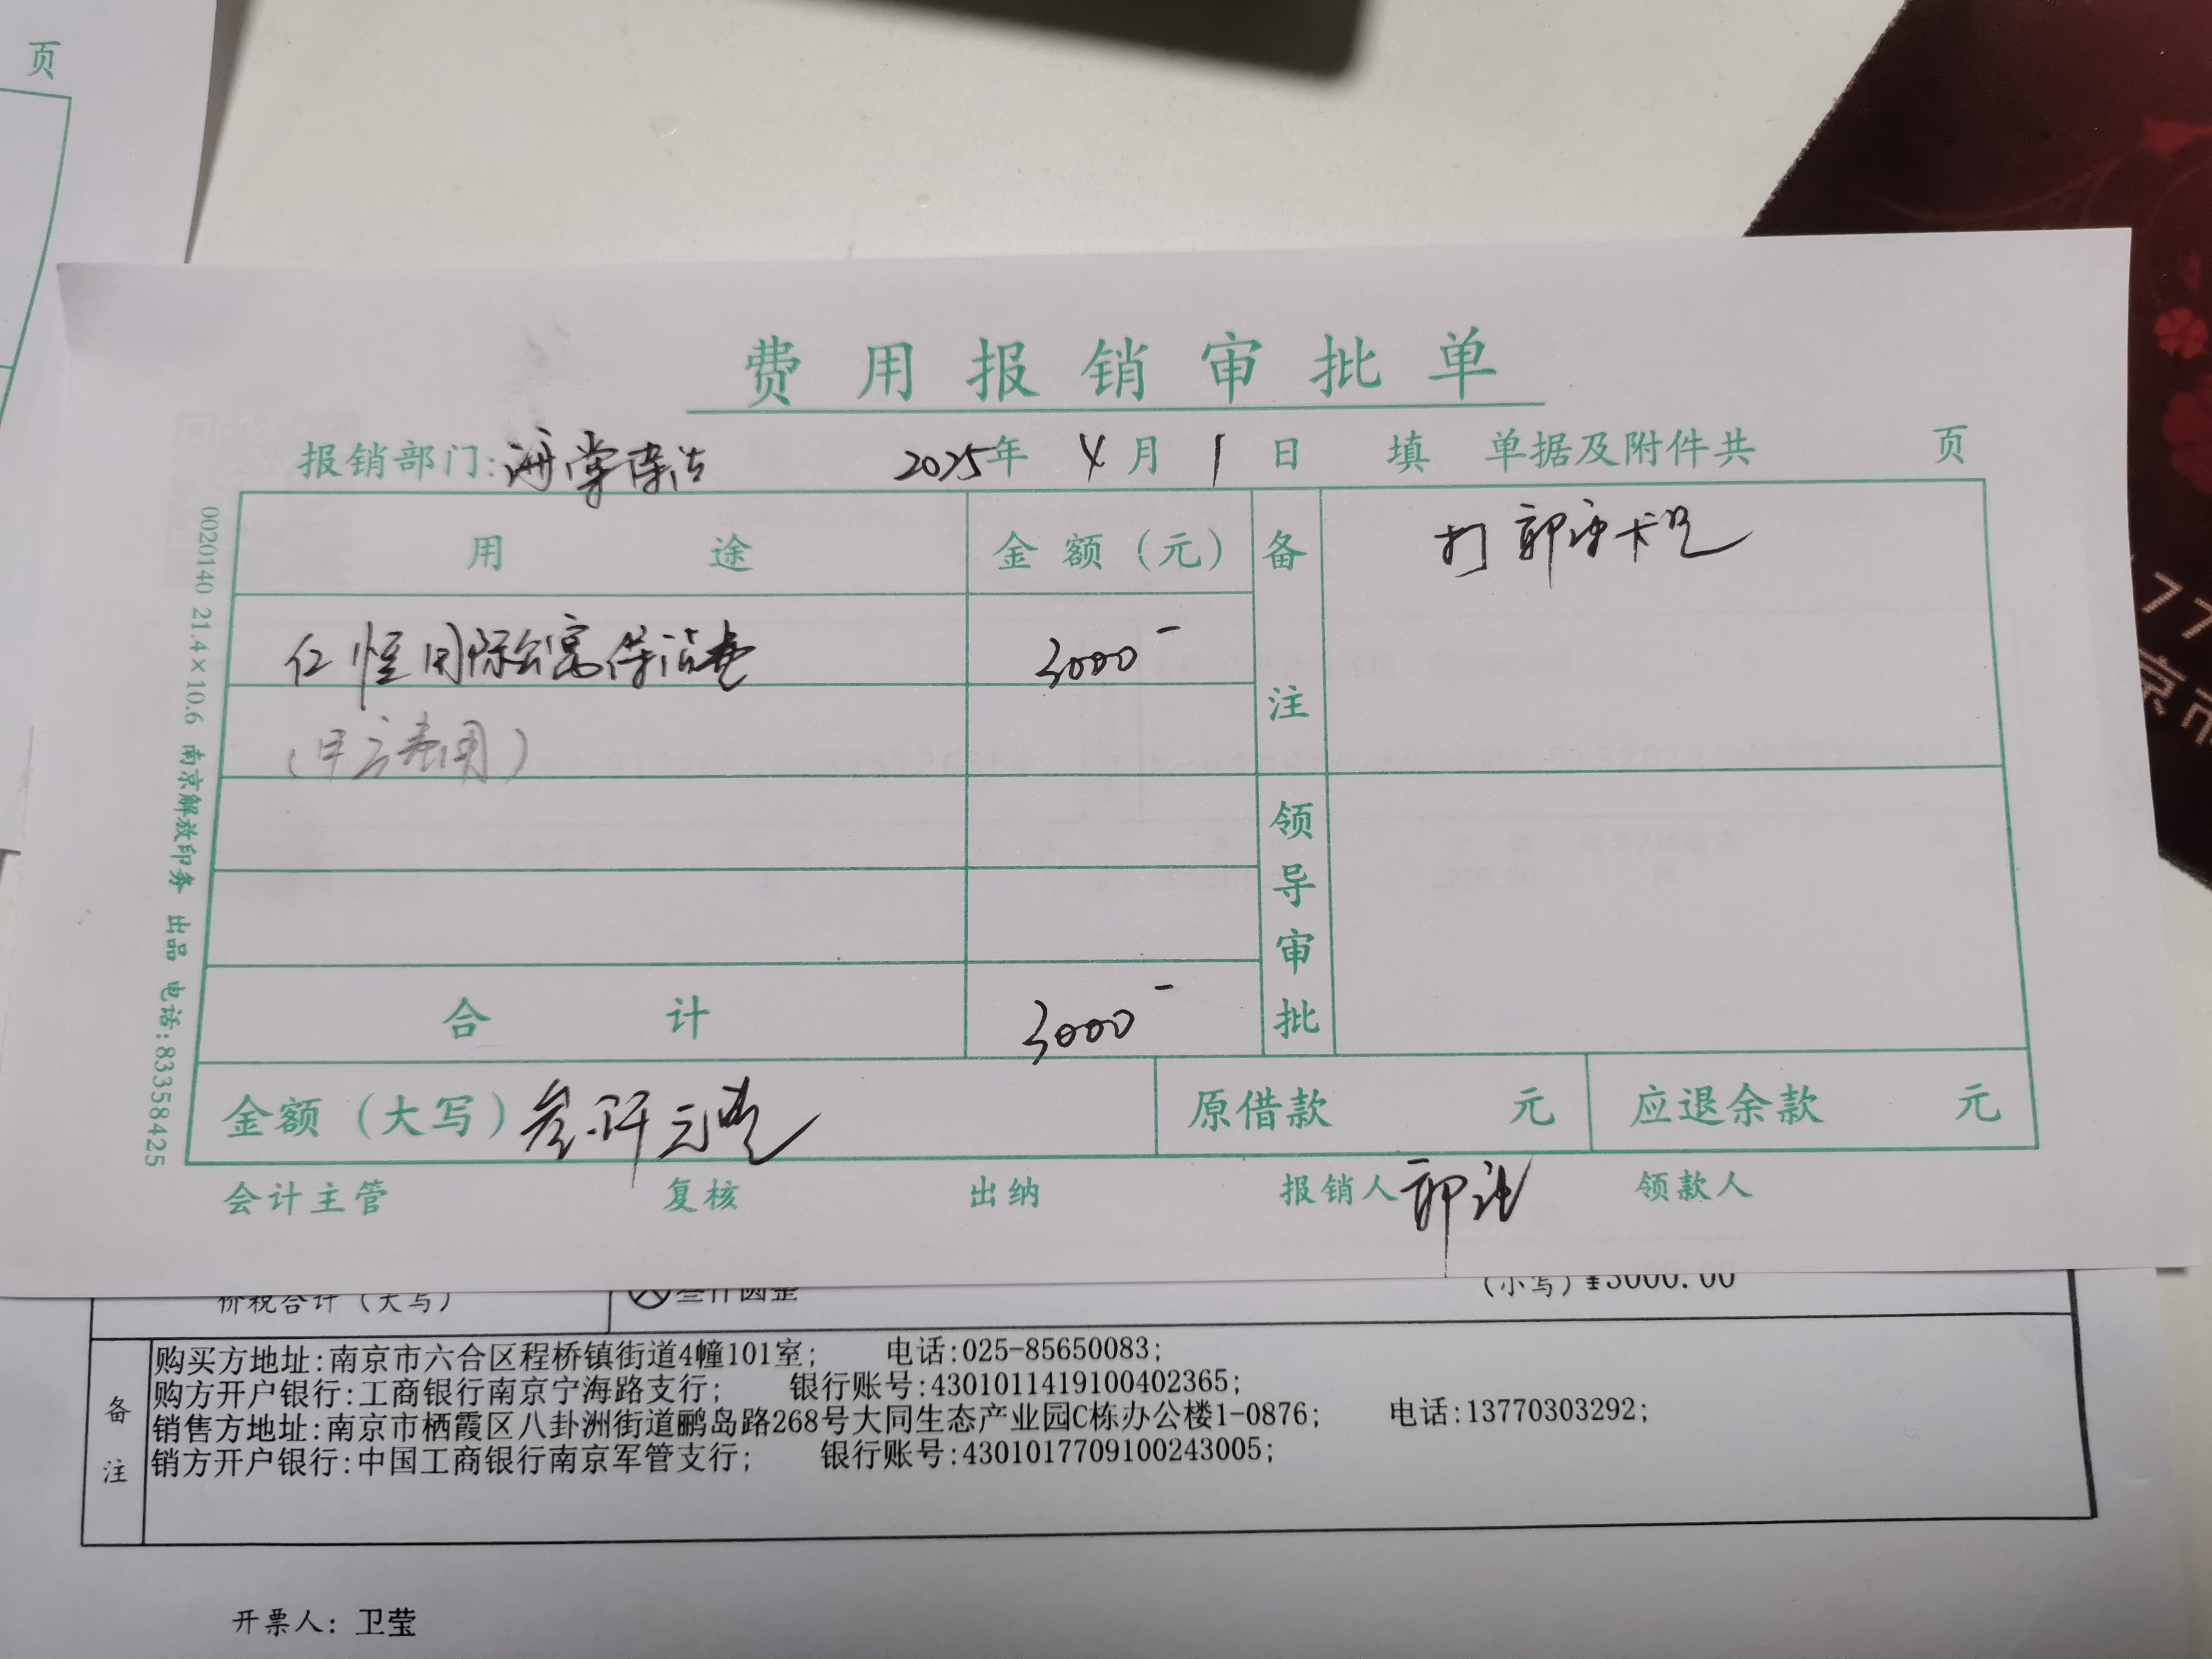 页
费用报销审批单
报销部门:海棠保洁 2025年 4月 1日 填 单据及附件共 页
用途 金额(元) 备注 打郭 卡上
仁恒国际公寓保洁费 3000-
(甲方费用)
领导审批
合计 3000-
金额(大写)叁仟元整 原借款 元 应退余款 元
会计主管 复核 出纳 报销人 郭 领款人
0020140 21.4×10.6 南京解放印务 出品 电话:83358425
价税合计(大写) 叁仟圆整 (小写)¥3000.00
备注
购买方地址:南京市六合区程桥镇街道4幢101室; 电话:025-85650083;
购方开户银行:工商银行南京宁海路支行; 银行账号:4301011419100402365;
销售方地址:南京市栖霞区八卦洲街道鹂岛路268号大同生态产业园C栋办公楼1-0876; 电话:13770303292;
销方开户银行:中国工商银行南京军管支行; 银行账号:4301017709100243005;
开票人:卫莹
77
京市